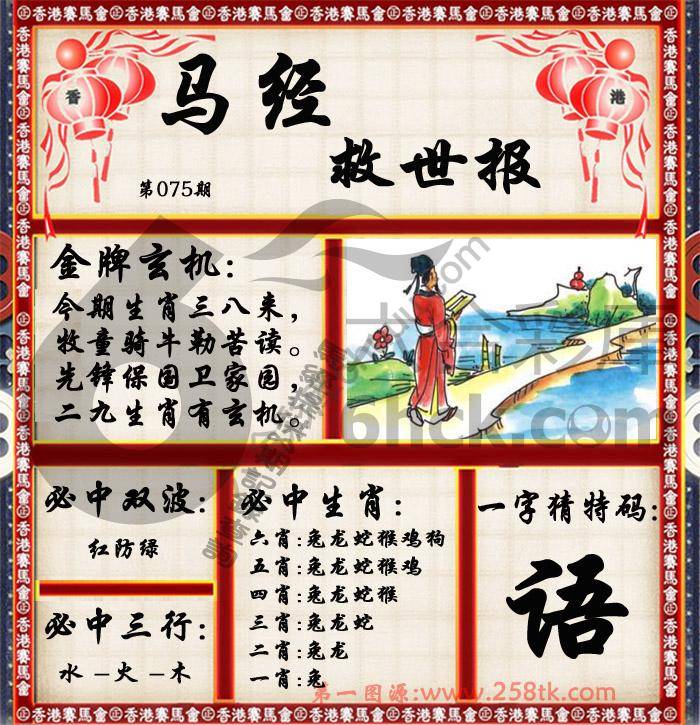 香港賽馬會㊣香港賽馬會㊣香港賽馬會㊣香港賽馬會㊣香港賽馬會㊣香港賽馬會㊣香港賽馬會
香
港
马经
救世报
第075期
金牌玄机:
今期生肖三八来,
牧童骑牛勤苦读。
先锋保国卫家园,
二九生肖有玄机。
六合彩库
6hck.com
必中双波:
红防绿
必中三行:
水–火–木
必中生肖:
六肖:兔龙蛇猴鸡狗
五肖:兔龙蛇猴鸡
四肖:兔龙蛇猴
三肖:兔龙蛇
二肖:兔龙
一肖:兔
一字猜特码:
语
第一图源:www.258tk.com